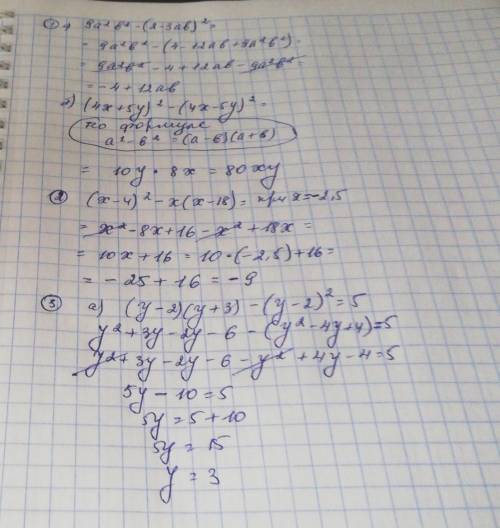 ① 1) 9a²b² - (2-3ab)² =
= 9a²b² - (4-12ab+9a²b²) =
= 9a²b² - 4 + 12ab - 9a²b² =
= -4 + 12ab
2) (4x+5y)² - (4x-5y)² =
по формуле
a² - b² = (a-b)(a+b)
= 10y · 8x = 80xy
② (x-4)² - x(x-18) = при x = -2,5
= x² - 8x + 16 - x² + 18x =
= 10x + 16 = 10 · (-2,5) + 16 =
= -25 + 16 = -9
③ a) (y-2)(y+3) - (y-2)² = 5
y² + 3y - 2y - 6 - (y² - 4y + 4) = 5
y² + 3y - 2y - 6 - y² + 4y - 4 = 5
5y - 10 = 5
5y = 5 + 10
5y = 15
y = 3